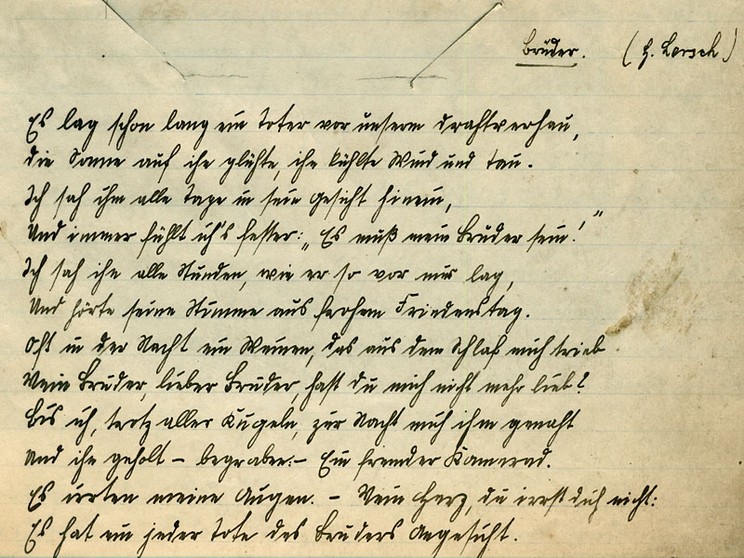 Brüder. (H. Lersch)
Es lag schon lang ein Toter vor unserm Drahtverhau,
Die Sonne auf ihn glühte, ihn kühlte Wind und Tau.
Ich sah ihm alle Tage in sein Gesicht hinein,
Und immer fühlt ich's fester: „Es muß mein Bruder sein!"
Ich sah ihn alle Stunden, wie er so vor mir lag,
Und hörte seine Stimme aus frohem Friedenstag.
Oft in der Nacht ein Weinen, das aus dem Schlaf mich trieb
Mein Bruder, lieber Bruder, hast du mich nicht mehr lieb?
Bis ich, trotz aller Kugeln, zur Nacht mich ihm genaht
Und ihn geholt – begraben: – Ein fremder Kamerad.
Es irrten meine Augen. – Mein Herz, du irrst dich nicht:
Es hat ein jeder Tote des Bruders Angesicht.